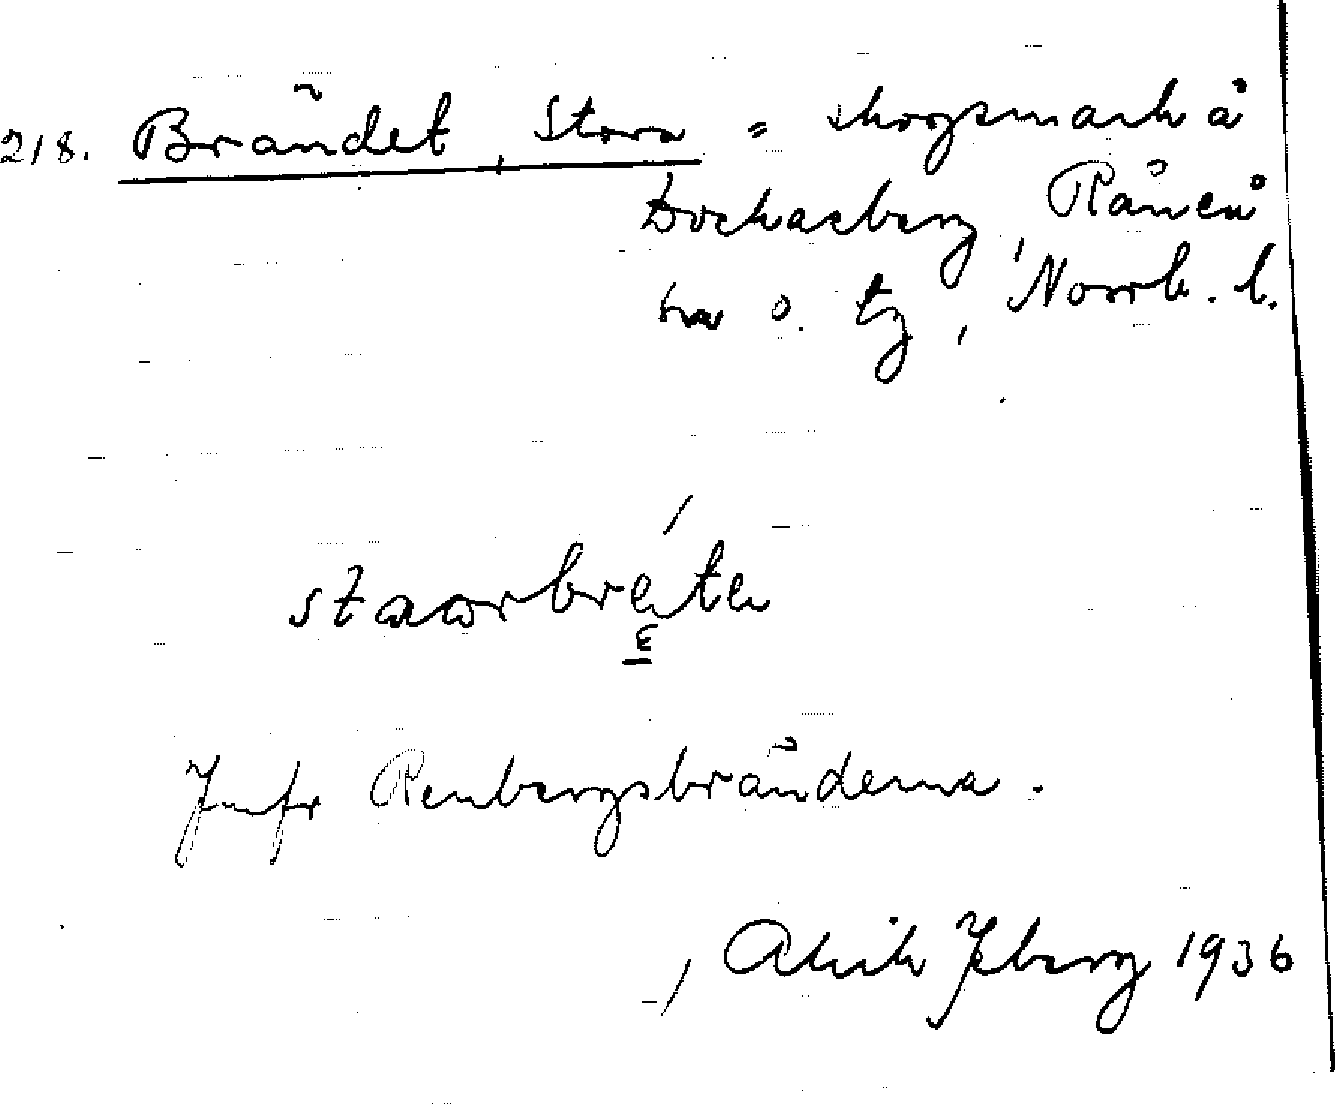 218. Brändet, Stora = skogsmark å
Dockasberg, Råneå
sn o. tg, Norrb. l.
staorbrèten
Jmfr Renbergsbränderna.
Alrik Isberg 1936